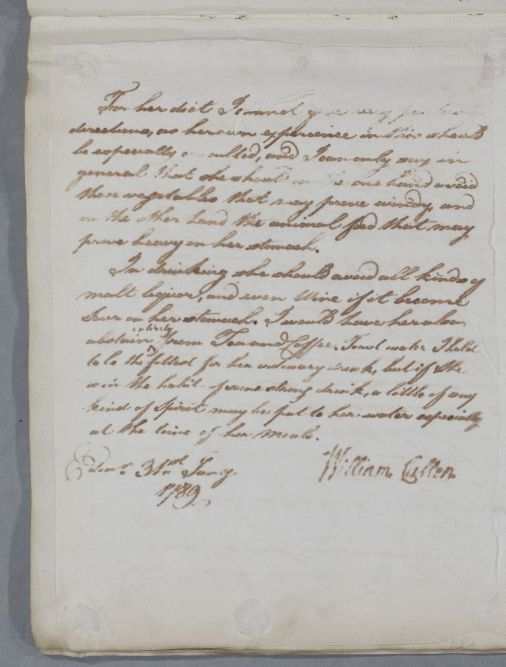 For her diet I cannot give very particular
directions, as her own experience in this should
be especially consulted, and I can only say in
general that she should on the one hand avoid
those vegetables that may prove windy, and
on the other hand the animal food that may
prove heavy on her stomach.
In drinking she should avoid all kinds of
malt liquor, and even Wine if it become
Sour on her stomach. I would have her also
abstain entirely from Tea and Coffee. Toast water I hold
to be the fittest for her ordinary drink, but if she
is in the habit of some strong drink, a little of any
kind of Spirit may be put to her water especially
at the time of her meals.
Edinr. 31st Jany.
1789.
William Cullen